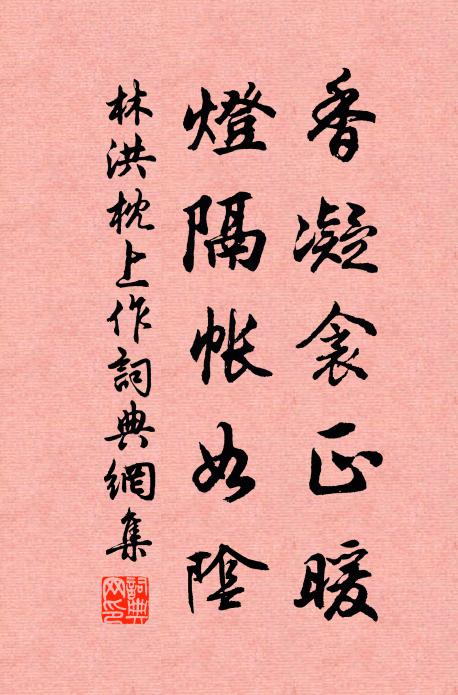 香凝衾正暖
燈隔帳如陰
林洪枕上作詞典網集
詞典網印